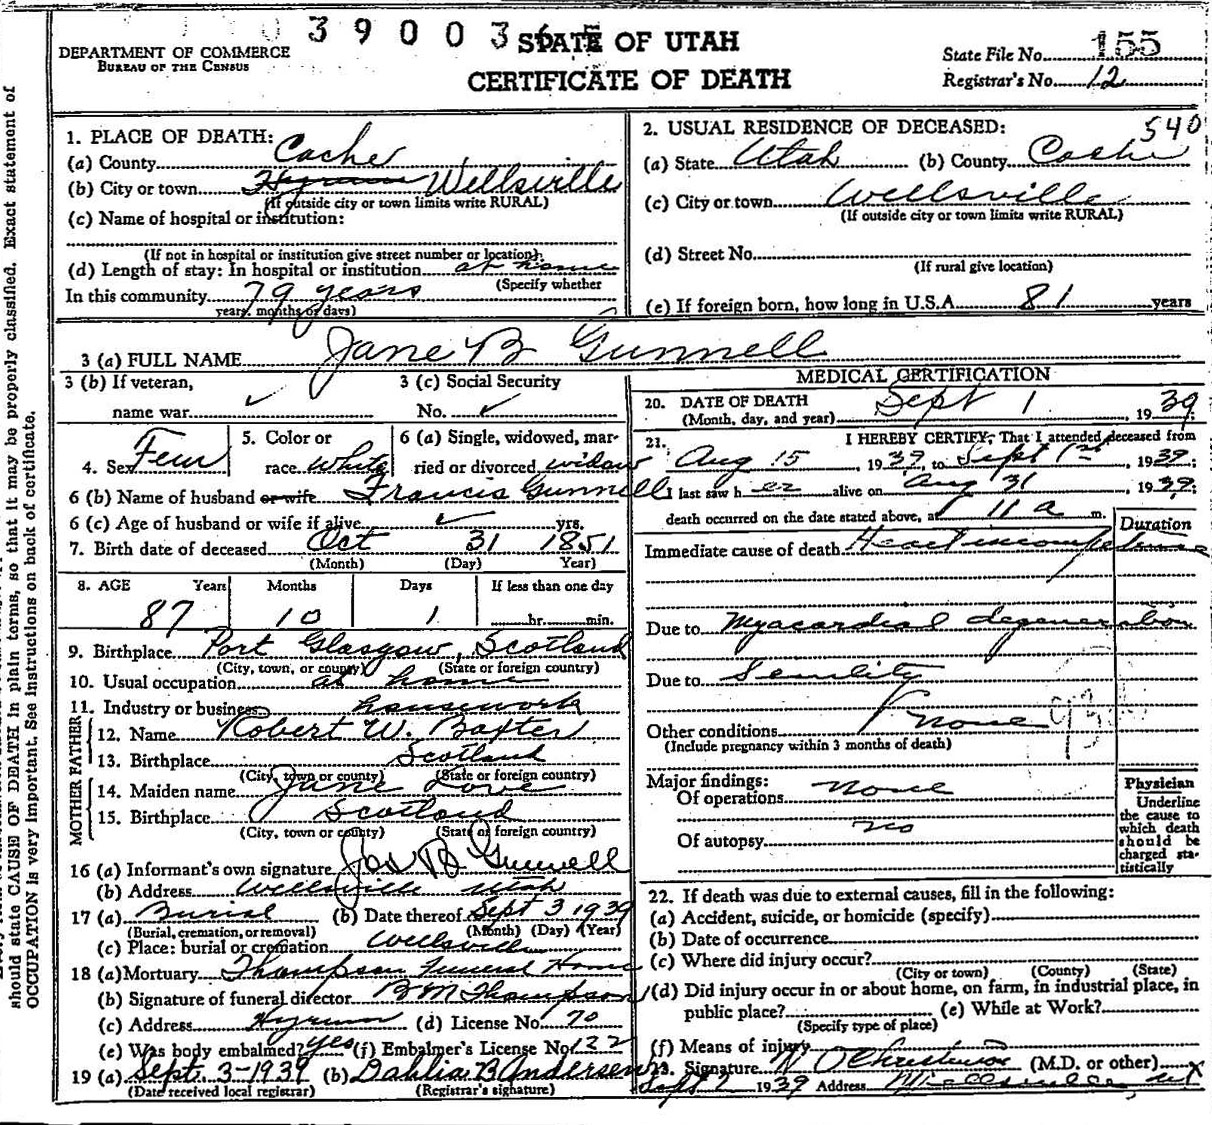 39003
STATE OF UTAH
CERTIFICATE OF DEATH
DEPARTMENT OF COMMERCE
BUREAU OF THE CENSUS
State File No. 155
Registrar's No. 12
should state CAUSE OF DEATH in plain terms, so that it may be properly classified. Exact statement of
OCCUPATION is very important. See instructions on back of certificate.
1. PLACE OF DEATH:
(a) County Cache
(b) City or town Hyrum Wellsville
(If outside city or town limits write RURAL)
(c) Name of hospital or institution:
(If not in hospital or institution give street number or location).
(d) Length of stay: In hospital or institution at home
(Specify whether
In this community 79 years
years, months or days)
2. USUAL RESIDENCE OF DECEASED: 540
(a) State Utah (b) County Cache
(c) City or town Wellsville
(If outside city or town limits write RURAL)
(d) Street No.
(If rural give location)
(e) If foreign born, how long in U.S.A. 81 years
3 (a) FULL NAME Jane B Gunnell
3 (b) If veteran,
name war
3 (c) Social Security
No.
4. Sex Fem
5. Color or
race White
6 (a) Single, widowed, mar-
ried or divorced widow
6 (b) Name of husband or wife Francis Gunnell
6 (c) Age of husband or wife if alive yrs.
7. Birth date of deceased Oct 31 1851
(Month) (Day) Year)
8. AGE Years Months Days If less than one day
87 10 1 hr. min.
9. Birthplace Port Glasgow, Scotland
(City, town, or county) (State or foreign country)
10. Usual occupation at home
11. Industry or business housework
FATHER
12. Name Robert W. Baxter
13. Birthplace Scotland
(City, town or county) (State or foreign country)
MOTHER
14. Maiden name Jane Love
15. Birthplace Scotland
(City, town or county) (State or foreign country)
16 (a) Informant's own signature Jos B Gunnell
(b) Address Wellsville Utah
17 (a) Burial (b) Date thereof Sept 3 1939
(Burial, cremation, or removal) (Month) (Day) (Year)
(c) Place: burial or cremation Wellsville
18 (a) Mortuary Thompson Funeral Home
(b) Signature of funeral director B M Thompson
(c) Address Hyrum (d) License No. 70
(e) Was body embalmed? yes (f) Embalmer's License No. 122
19 (a) Sept. 3-1939 (b) Dahlia B Andersen
(Date received local registrar) (Registrar's signature)
MEDICAL CERTIFICATION
20. DATE OF DEATH
(Month, day, and year) Sept 1, 1939;
21. I HEREBY CERTIFY, That I attended deceased from
Aug 15, 1939, to Sept 1st, 1939;
I last saw her alive on Aug 31 1939;
death occurred on the date stated above, at 11 a m.
Duration
Immediate cause of death Heart incompetence
Due to Myacardial degeneration
Due to Senility
Other conditions none
(Include pregnancy within 3 months of death)
Major findings:
Of operations none
Of autopsy no
Physician
Underline
the cause to
which death
should be
charged sta-
tistically
22. If death was due to external causes, fill in the following:
(a) Accident, suicide, or homicide (specify)
(b) Date of occurrence
(c) Where did injury occur?
(City or town) (County) (State)
(d) Did injury occur in or about home, on farm, in industrial place, in
public place? (e) While at Work?
(Specify type of place)
(f) Means of injury
23. Signature (M.D. or other)
Sept 2 1939 Address Wellsville, Ut